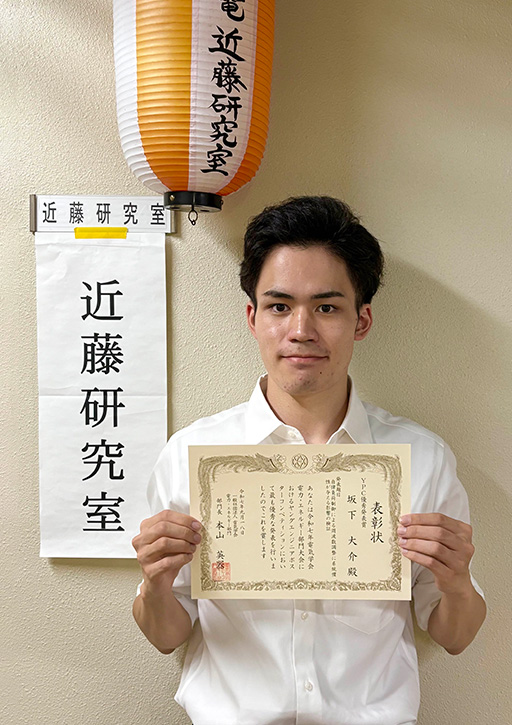 近藤研究室
近藤研究室
近藤研究室
表彰状
YPC優秀発表賞
坂下 大介 殿
発表題目
性が与える影響の検証
あなたは令和七年電気学会
電力・エネルギー部門大会に
おけるヤングエンジニアポス
ターコンペティションにおい
て最も優秀な発表を行いま
したのでこれを賞します
一般社団法人 電気学会
電力・エネルギー部門
部門長 本山 英器